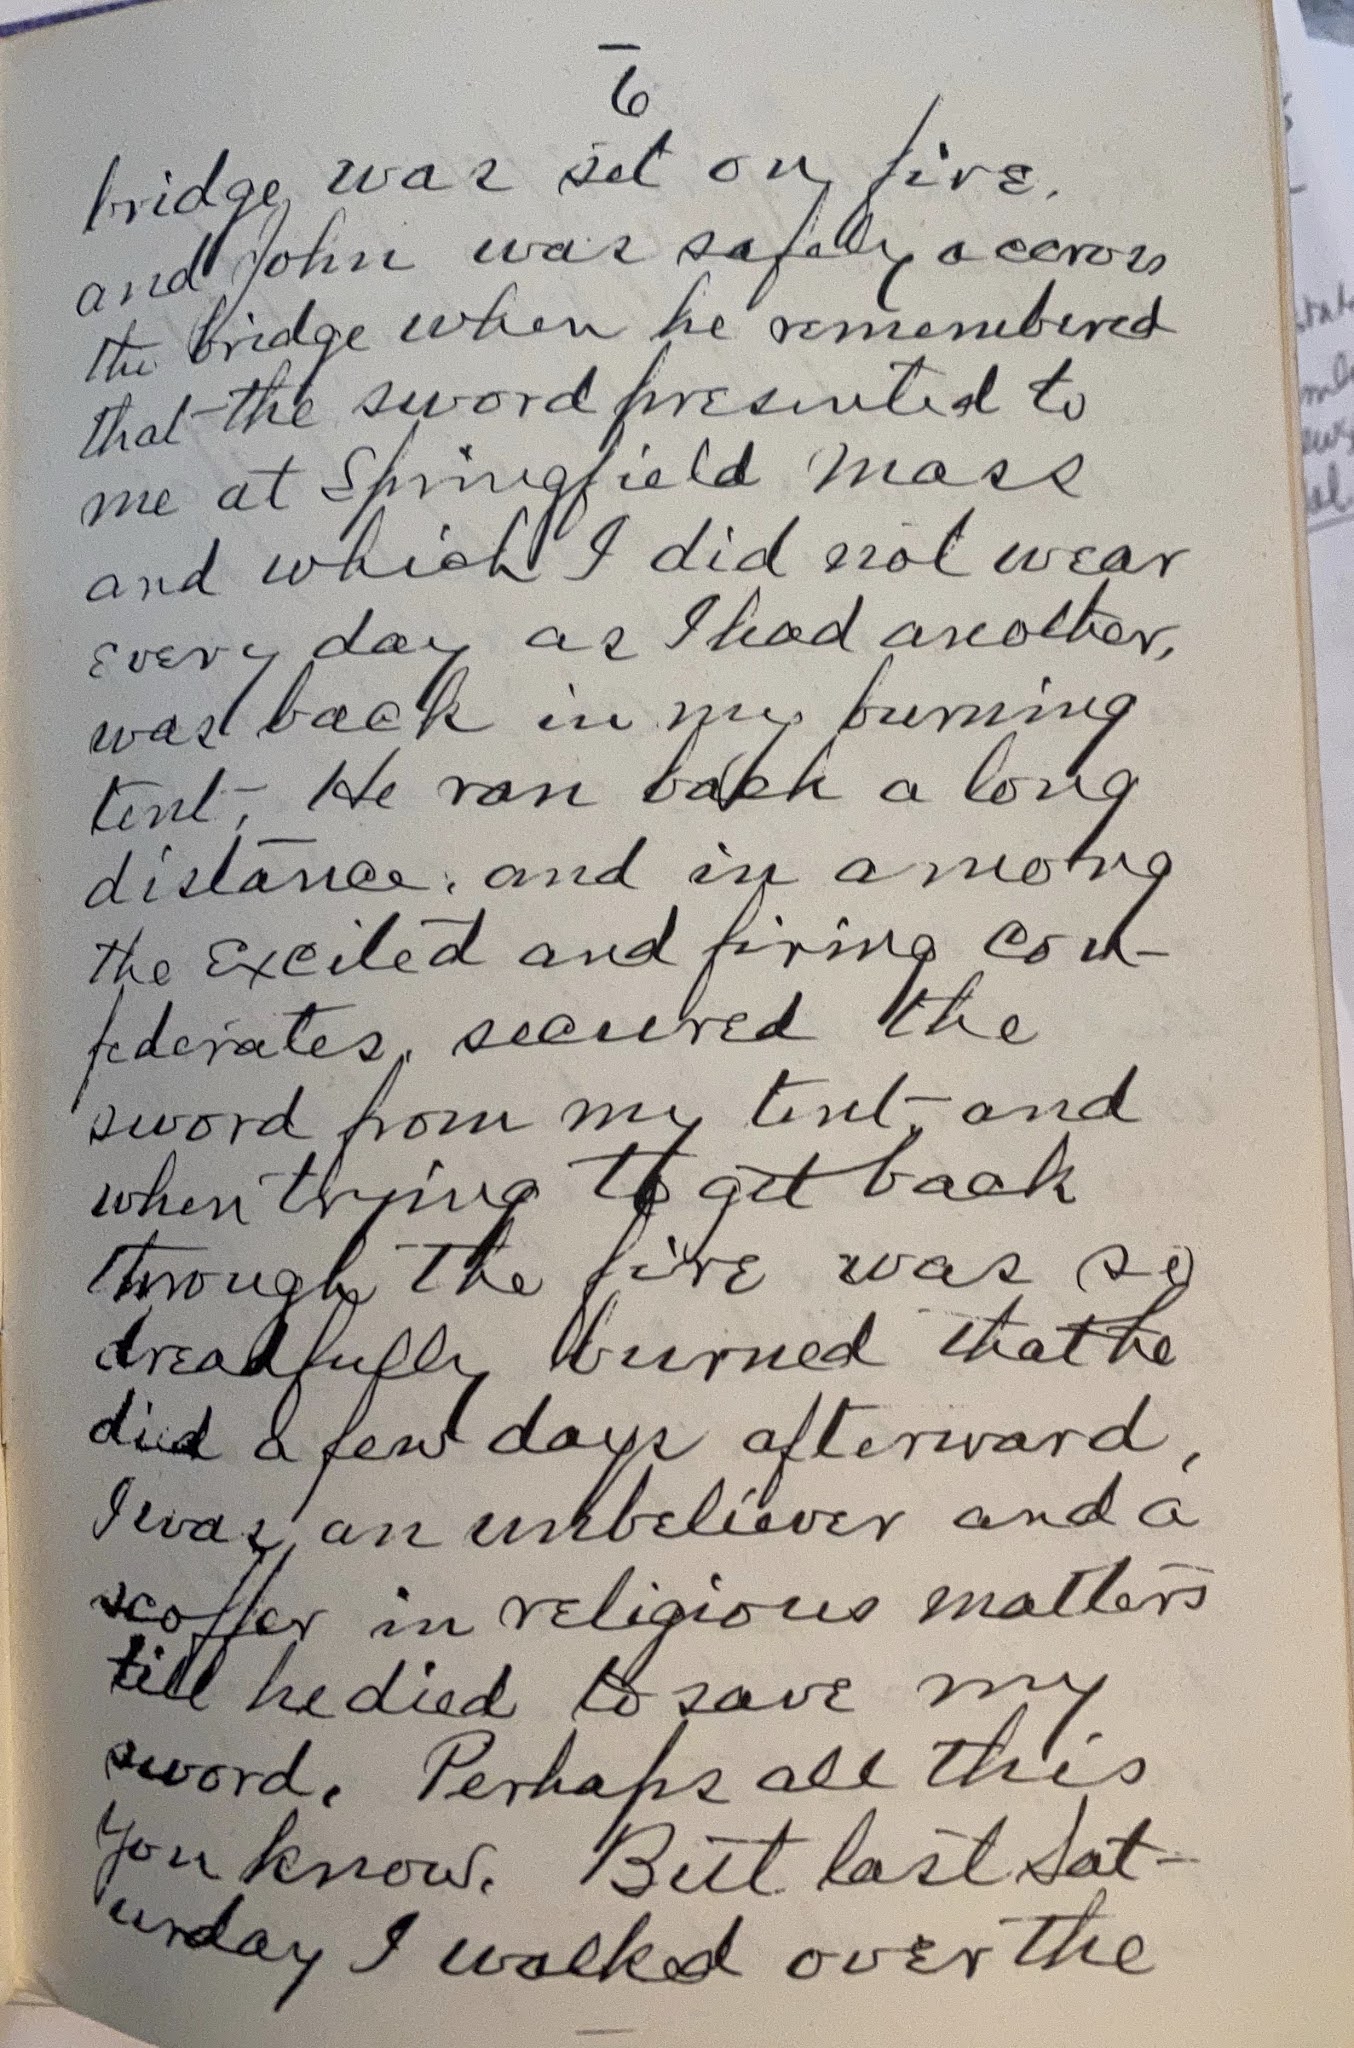 6
bridge was set on fire.
and John was safely accross
the bridge when he remembered
that the sword presented to
me at Springfield Mass
and which I did not wear
every day as I had another,
was back in my burning
tent, He ran back a long
distance. and in among
the Excited and firing con-
federates. secured the
sword from my tent, and
when trying to get back
through the fire was so
dreadfully burned that he
died a few days afterward,
I was an unbeliever and a
scoffer in religious matters
till he died to save my
sword. Perhaps all this
you know. But last Sat-
urday I walked over the